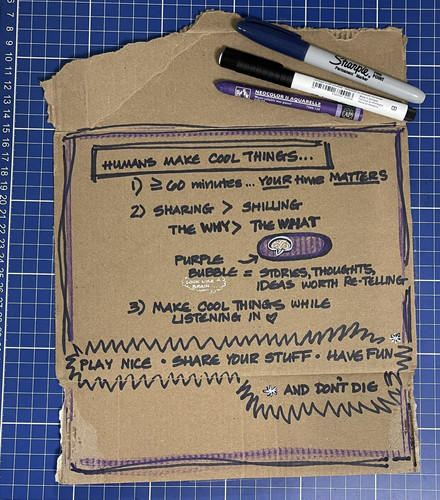 Sharpie
Permanent Marker
NEOCOLOR II AQUARELLE
HUMANS MAKE COOL THINGS...
1) ≥ 60 minutes... YOUR time MATTERS
2) SHARING > SHILLING
THE WHY > THE WHAT
PURPLE →
BUBBLE = STORIES, THOUGHTS,
IDEAS WORTH RE-TELLING
LOOK LIKE A
BRAIN
3) MAKE COOL THINGS WHILE
LISTENING IN ♡
PLAY NICE • SHARE YOUR STUFF • HAVE FUN
AND DON'T DIE